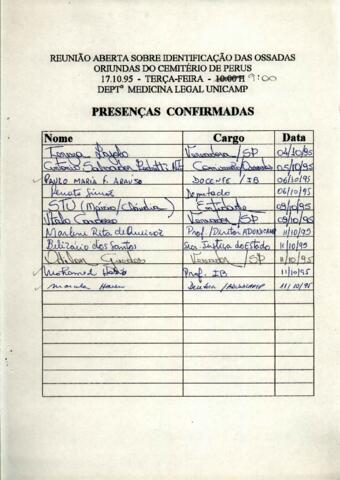 REUNIÃO ABERTA SOBRE IDENTIFICAÇÃO DAS OSSADAS
ORIUNDAS DO CEMITÉRIO DE PERUS
17.10.95 - TERÇA-FEIRA - 10:00 H 9:00
DEPTº MEDICINA LEGAL UNICAMP
PRESENÇAS CONFIRMADAS
Nome Cargo Data
Vereadora / SP 04/10/95
05/10/95
PAULO MARIA F. ARAUJO DOCENTE / IB 06/10/95
Renato Simões Deputado 06/10/95
STU (Márcio/Cláudia) Entidade 09/10/95
Vital Cardoso Vereador / SP 09/10/95
Marlene Rita de Queiroz Prof./Diretora ADUNICAMP 11/10/95
Belizário dos Santos Sec. Justiça do Estado 11/10/95
Vereador / SP 11/10/95
Mohamed Prof. IB 11/10/95
/ADUNICAMP 11/10/95